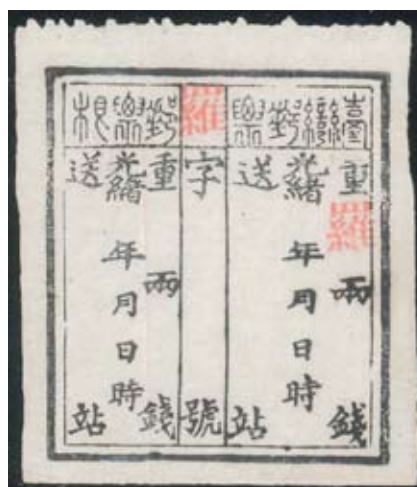 臺灣郵票
重羅兩錢
光緒年月日時
送站
羅字號
郵票根
重兩錢
光緒年月日時
送站